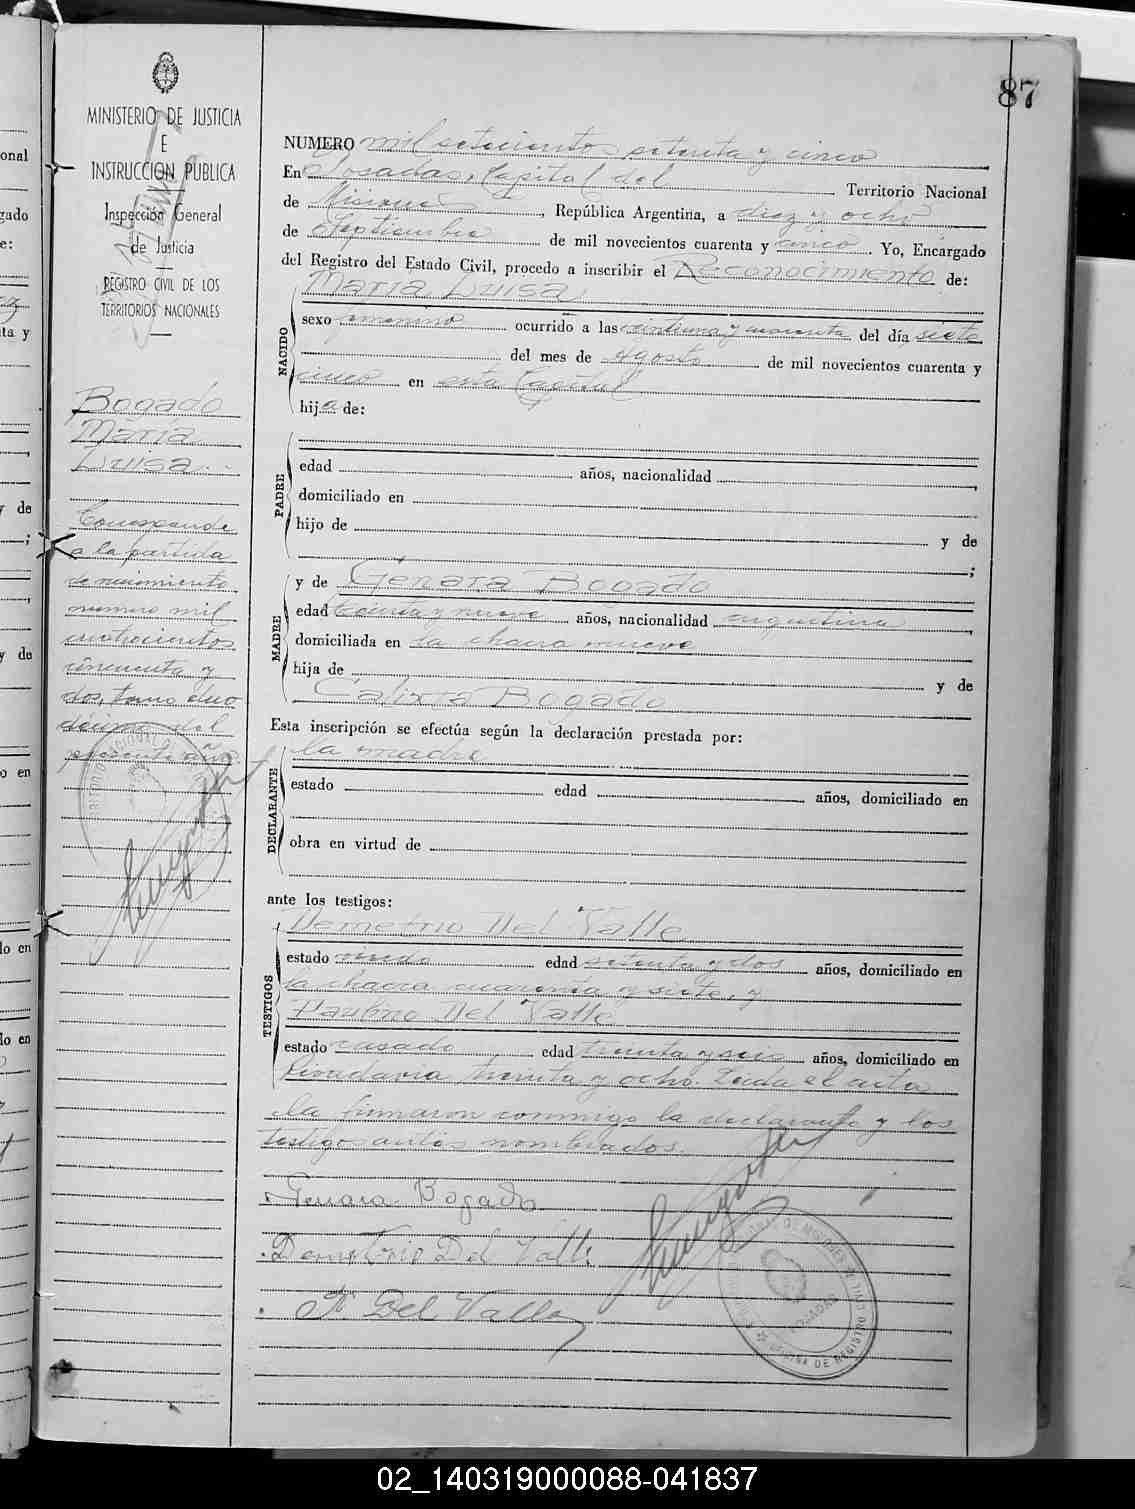 87
MINISTERIO DE JUSTICIA
E
INSTRUCCION PUBLICA
Inspección General
de Justicia
REGISTRO CIVIL DE LOS
TERRITORIOS NACIONALES
Bogado
María
Luisa
Corresponde
a la partida
de nacimiento
numero mil
cuatrocientos
cincuenta y
dos, tomo duo
decimo del
presente año.
NUMERO mil setecientos setenta y cinco
En Posadas, Capital del Territorio Nacional
de Misiones, República Argentina, a diez y ocho
de Septiembre de mil novecientos cuarenta y cinco. Yo, Encargado
del Registro del Estado Civil, procedo a inscribir el Reconocimiento de:
María Luisa
NACIDO
sexo femenino ocurrido a las veintiuna y cuarenta del día siete
del mes de Agosto de mil novecientos cuarenta y
cinco en esta Capital
hija de:
PADRE
edad años, nacionalidad ,
domiciliado en
hijo de y de
;
MADRE
y de Genara Bogado
edad treinta y nueve años, nacionalidad argentina,
domiciliada en la chacra nueve
hija de y de
Calixta Bogado
Esta inscripción se efectúa según la declaración prestada por:
la madre
DECLARANTE
estado edad años, domiciliado en
obra en virtud de
ante los testigos:
TESTIGOS
Demetrio Del Valle
estado viudo edad setenta y dos años, domiciliado en
la chacra cuarenta y siete, y
Paulino Del Valle
estado casado edad treinta y seis años, domiciliado en
Rivadavia treinta y ocho. Leida el acta
la firmaron conmigo la declarante y los
testigos antes nombrados.
Genara Bogado
Demetrio Del Valle
P. Del Valle
POSADAS
OFICINA DE REGISTRO CIVIL
02_140319000088-041837